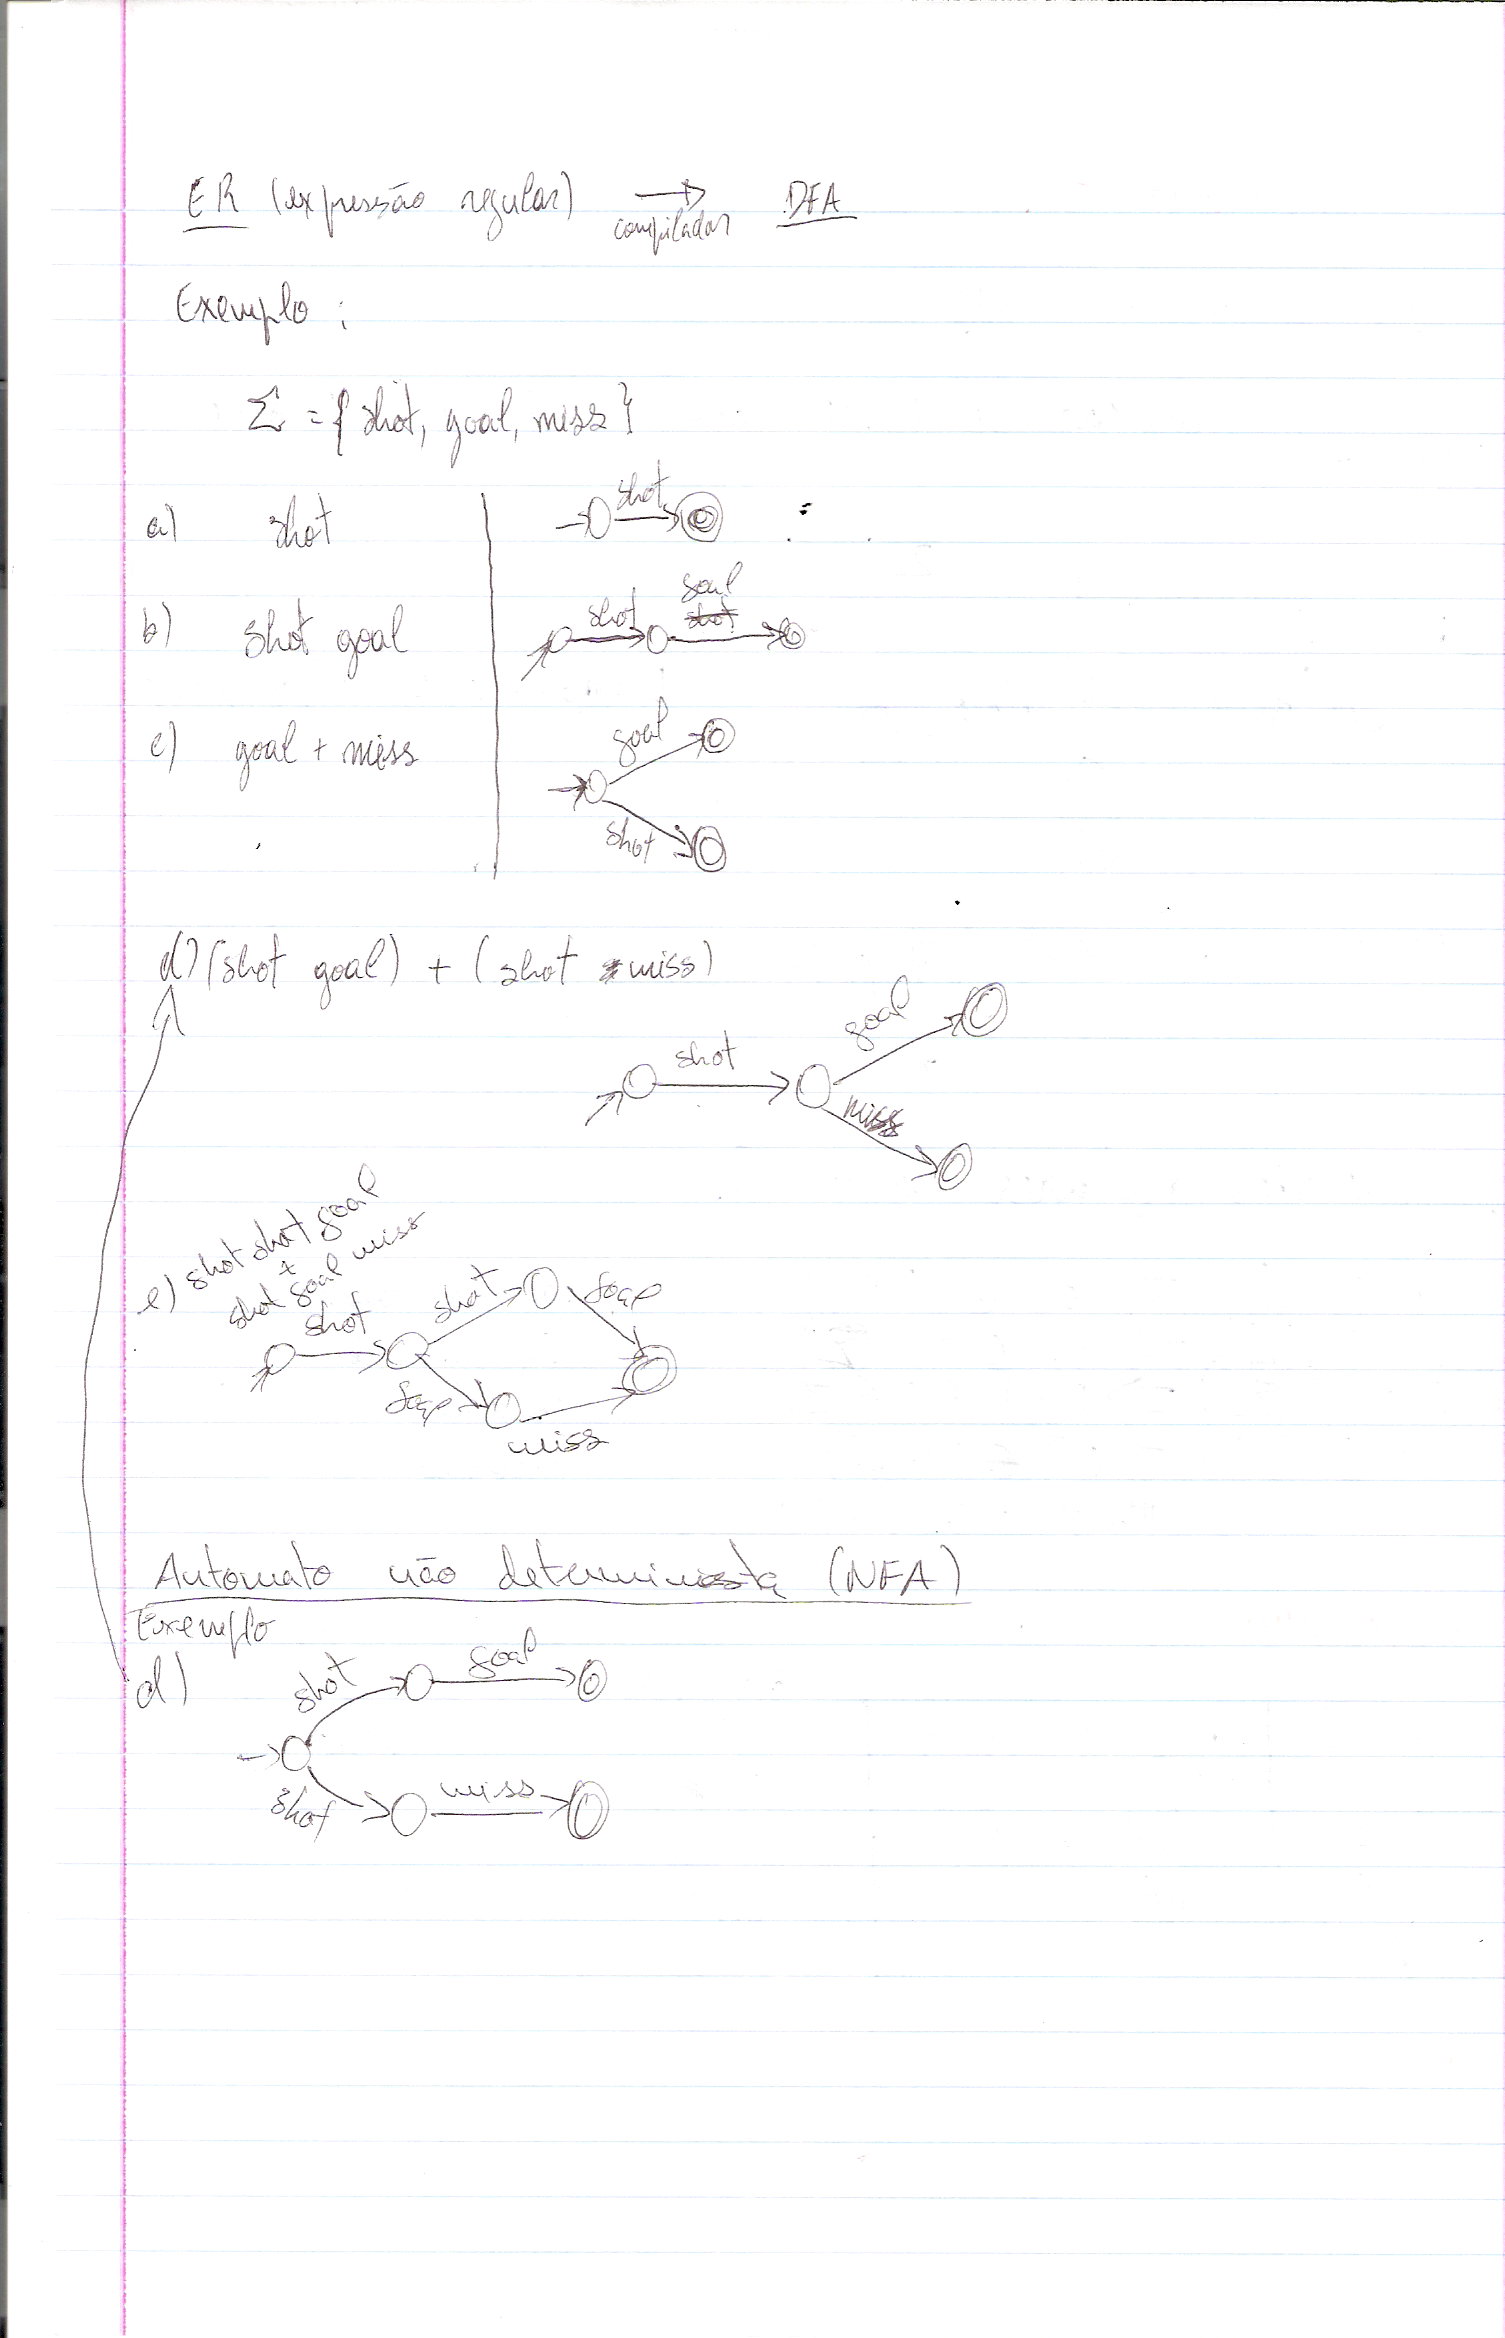 ER (expressão regular) → DFA
compilador
Exemplo :
Σ = { shot, goal, miss }
a) shot
shot
b) shot goal
shot goal
shot
c) goal + miss
goal
shot
d) (shot goal) + (shot miss)
shot
goal
miss
e) shot shot goal
+
shot goal miss
shot
shot
goal
goal
miss
Automato não determinista (NFA)
Exemplo
d)
shot
goal
shot
miss